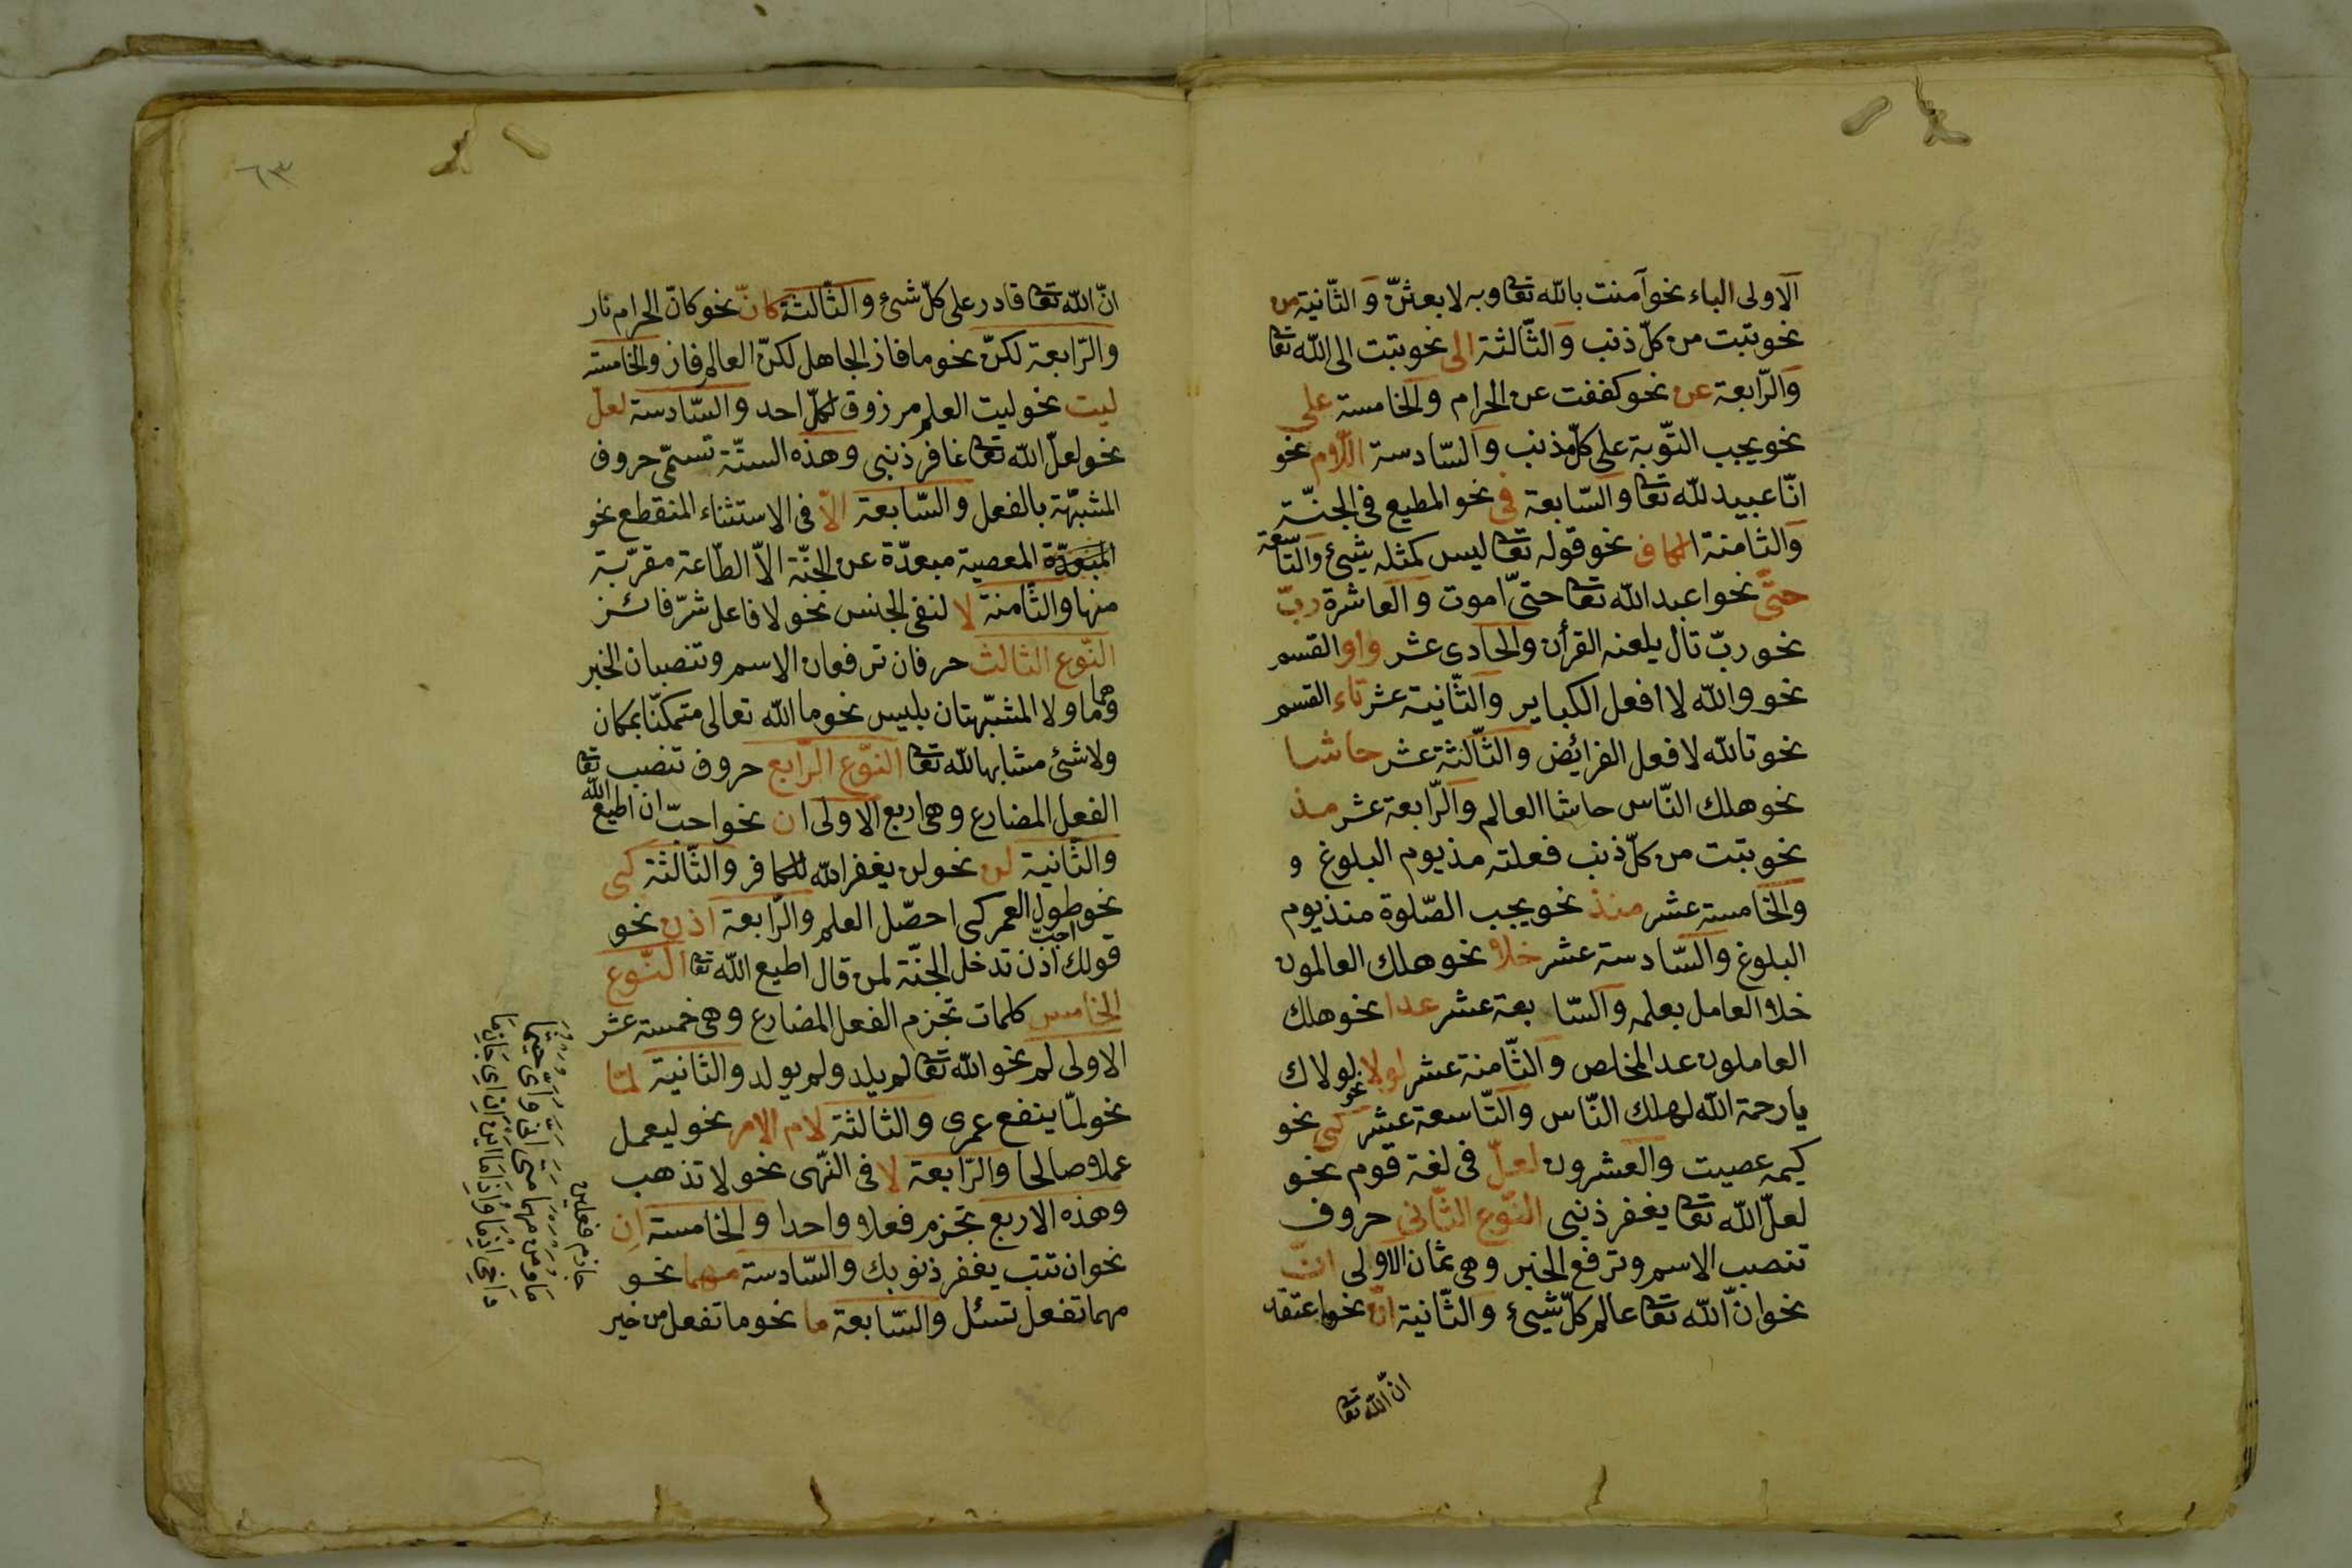 الاولى الباء نحو آمنت بالله تعا وبه لابعثنّ والثّانية من
نحو تبت من كلّ ذنب والثّالثة الى نحو تبت الى الله تعا
والرّابعة عن نحو كففت عن الحرام والخامسة على
نحو يجب التّوبة على كلّ مذنب والسّادسة اللّام نحو
انّا عبيد لله تعا والسّابعة فى نحو المطيع فى الجنّة
والثامنة الكاف نحو قوله تعا ليس كمثله شيئ والتّاسعة
حتّى نحو اعبد الله تعا حتىّ اموت والعاشرة ربّ
نحو ربّ تال يلعنه القرأن والحادى عشر واو القسم
نحو والله لا افعل الكباير والثّانية عشر تاء القسم
نحو تالله لافعل الفرائض والثّالثة عشر حاشا
نحو هلك النّاس حاشا العالم والرّابعة عشر مذ
نحو تبت من كلّ ذنب فعلته مذ يوم البلوغ و
والخامسة عشر منذ نحو يجب الصّلوة منذ يوم
البلوغ والسّادسة عشر خلا نحو هلك العالمون
خلا العامل بعلمه والسّا بعة عشر عدا نحو هلك
العاملون عدا المخلص والثّامنة عشر لولا نحو لولاك
يارحمة الله لهلك النّاس والتّاسعة عشر كى نحو
كيمه عصيت والعشرون لعلّ فى لغة قوم نحو
لعلّ الله تعا يغفر ذنبى النّوع الثّانى حروف
تنصب الاسم وترفع الخبر وهى ثمان الاولى انّ
نحو انّ الله تعا عالم كلّ شيئ والثّانية انّ نحو اعتقد
انّ الله تعا
٦٣
انّ الله تعا قادر على كلّ شئ والثّالثة كانّ نحو كانّ الحرام نار
والرّابعة لكنّ نحو ما فاز الجاهل لكنّ العالم فاز والخامسة
ليت نحو ليت العلم مرزوق لكلّ احد والسّادسة لعلّ
نحو لعلّ الله تعا غافر ذنبى وهذه الستّة تسمّى حروف
المشبّهة بالفعل والسّابعة الاّ فى الاستثناء المنقطع نحو
المعصية مبعدّة عن الجنّة الاّ الطّاعة مقرّبة
منها والثّامنة لا لنفى الجنس نحو لا فاعل شرّ فائز
النّوع الثالث حرفان ترفعان الاسم وتنصبان الخبر
وهما ما ولا المشبّهتان بليس نحو ما الله تعالى متمكنّا بمكان
ولا شئ مشابها لله تعا النّوع الرّابع حروف تنصب
الفعل المضارع وهى اربع الاولى ان نحو احبّ ان اطيع الله تعا
والثّانية لن نحو لن يغفر الله للكافر والثّالثة كى
نحو طول العمر احبّ كى احصّل العلم والرّابعة اذن نحو
قولك اذن تدخل الجنّة لمن قال اطيع الله تعا النّوع
الخامس كلمات تجزم الفعل المضارع وهى خمسة عشر
الاولى لم نحو الله تعا لم يلد ولم يولد والثانية لمّا
نحو لمّا ينفع عمرى والثالثة لام الامر نحو ليعمل
عملا صالحا والرّابعة لا فى النّهى نحو لا تذهب
وهذه الاربع تجزم فعلا واحدا والخامسة ان
نحو ان تتب يغفر ذنوبك والسّادسة مهما نحو
مهما تفعل تسئل والسّابعة ما نحو ما تفعل من خير
جازم فعلين
ما ومن مهما متى انى واى حيثما